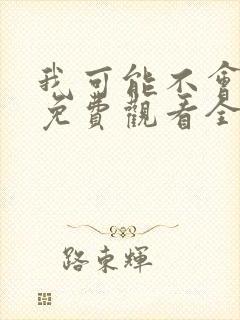 我可能不會
免費觀看全
路東輝